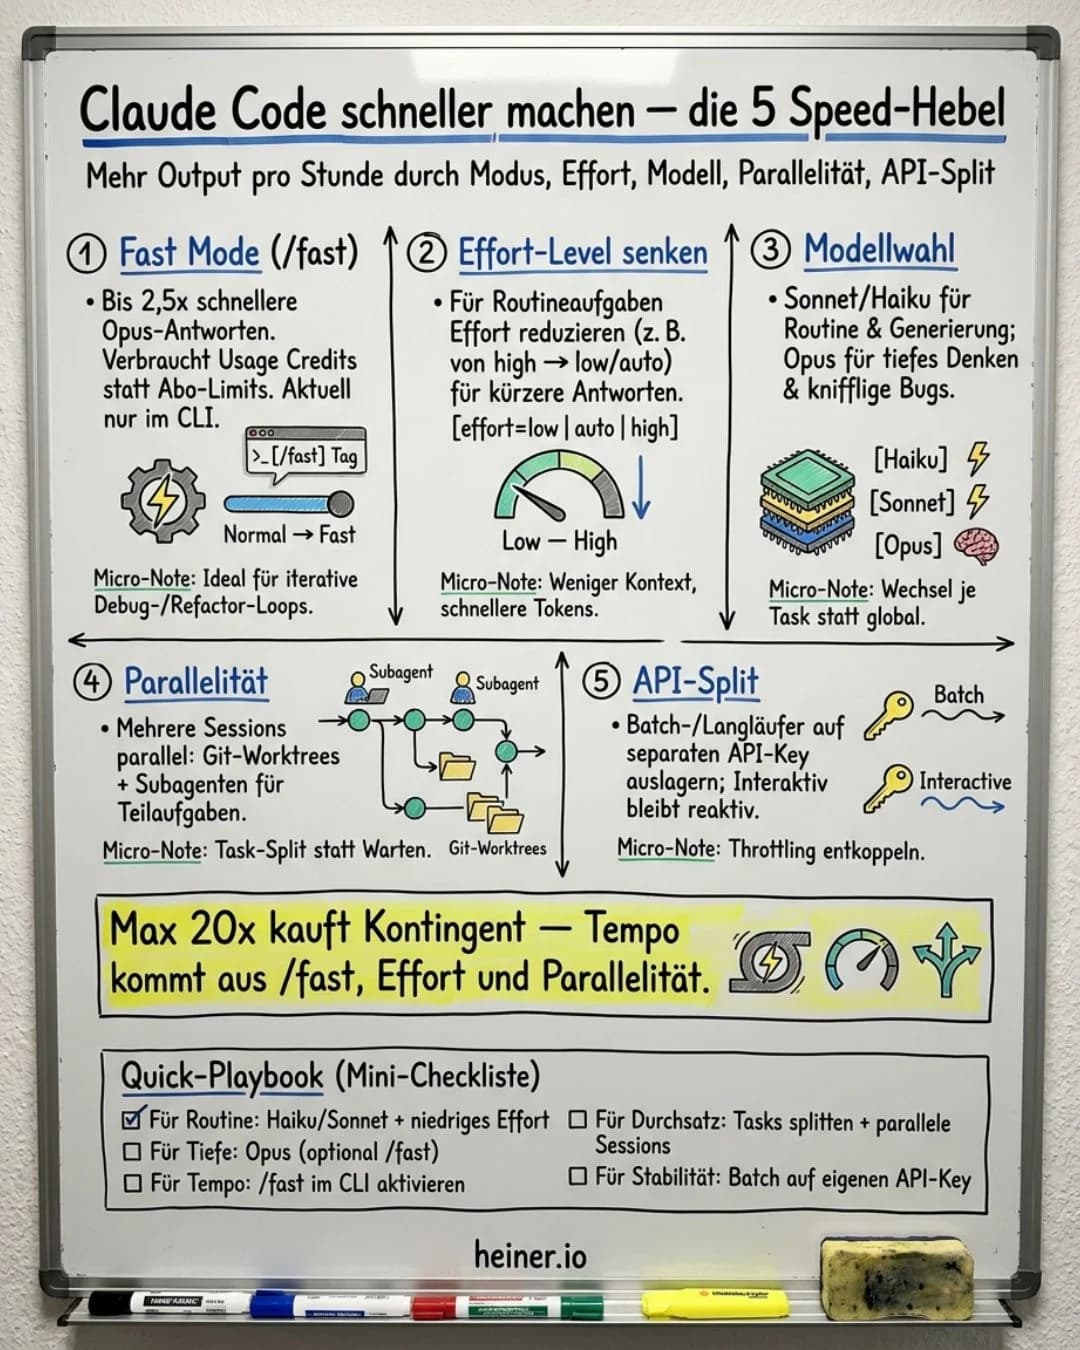 Claude Code schneller machen – die 5 Speed-Hebel
Mehr Output pro Stunde durch Modus, Effort, Modell, Parallelität, API-Split
1 Fast Mode (/fast)
• Bis 2,5x schnellere
Opus-Antworten.
Verbraucht Usage Credits
statt Abo-Limits. Aktuell
nur im CLI.
>_[/fast] Tag
Normal → Fast
Micro-Note: Ideal für iterative
Debug-/Refactor-Loops.
2 Effort-Level senken
• Für Routineaufgaben
Effort reduzieren (z. B.
von high → low/auto)
für kürzere Antworten.
[effort=low | auto | high]
Low – High
Micro-Note: Weniger Kontext,
schnellere Tokens.
3 Modellwahl
• Sonnet/Haiku für
Routine & Generierung;
Opus für tiefes Denken
& knifflige Bugs.
[Haiku]
[Sonnet]
[Opus]
Micro-Note: Wechsel je
Task statt global.
4 Parallelität
• Mehrere Sessions
parallel: Git-Worktrees
+ Subagenten für
Teilaufgaben.
Subagent
Subagent
Git-Worktrees
Micro-Note: Task-Split statt Warten.
5 API-Split
• Batch-/Langläufer auf
separaten API-Key
auslagern; Interaktiv
bleibt reaktiv.
Batch
Interactive
Micro-Note: Throttling entkoppeln.
Max 20x kauft Kontingent – Tempo
kommt aus /fast, Effort und Parallelität.
Quick-Playbook (Mini-Checkliste)
Für Routine: Haiku/Sonnet + niedriges Effort
Für Tiefe: Opus (optional /fast)
Für Tempo: /fast im CLI aktivieren
Für Durchsatz: Tasks splitten + parallele
Sessions
Für Stabilität: Batch auf eigenen API-Key
heiner.io